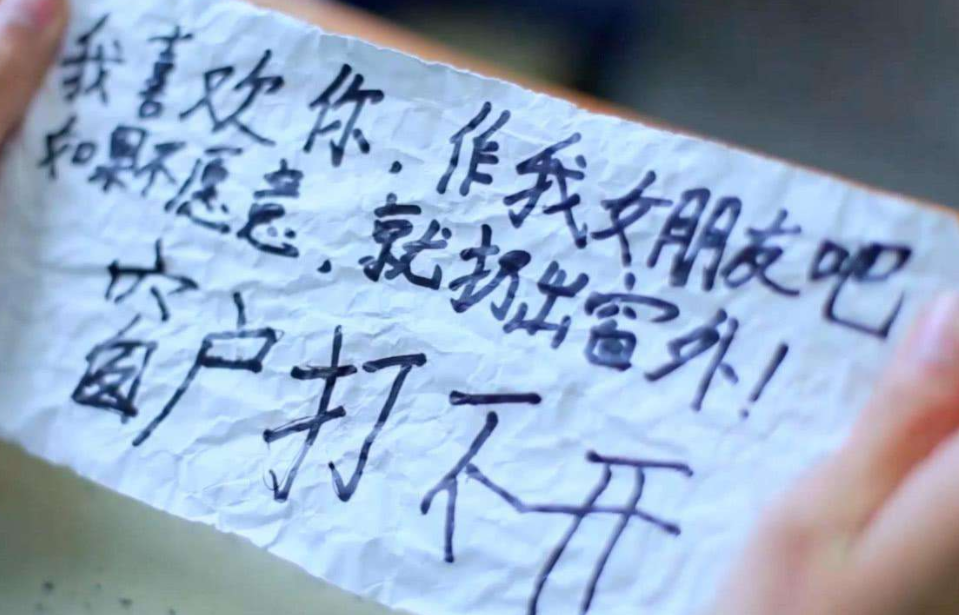 我喜欢你,作我女朋友吧
如果不愿意,就扔出窗外!
窗户打不开